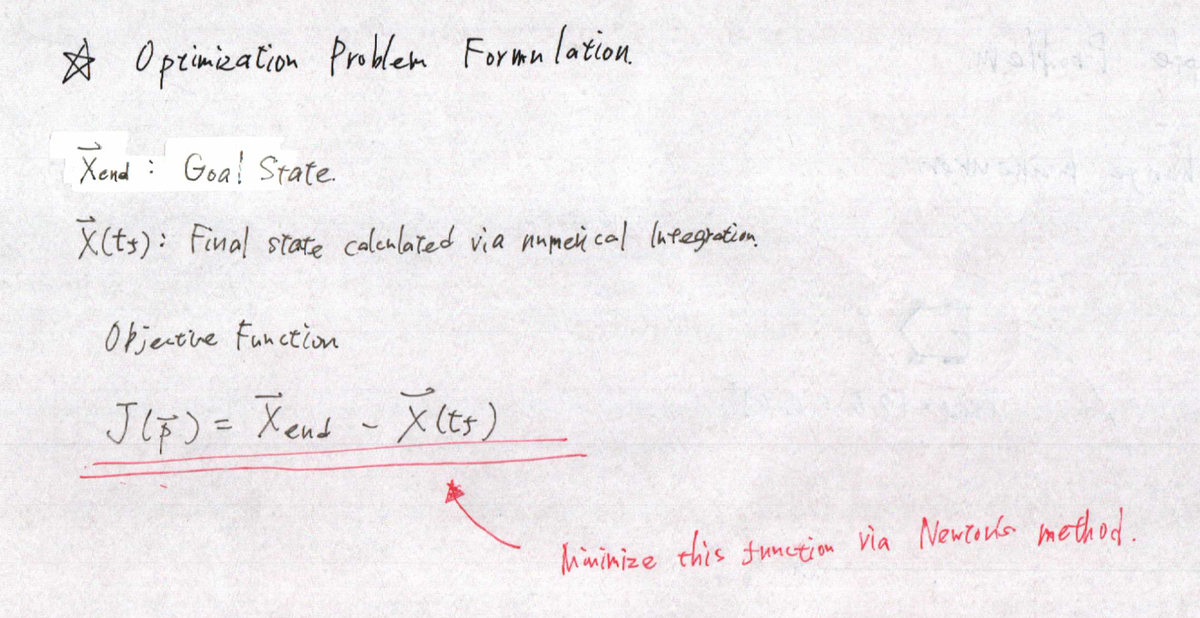 ☆ Optimization Problem Formulation.
X⃗end : Goal State.
X⃗(tf) : Final state calculated via numerical Integration.
Objective Function
J(p⃗) = X⃗end - X⃗(tf)
Minimize this function via Newton's method.